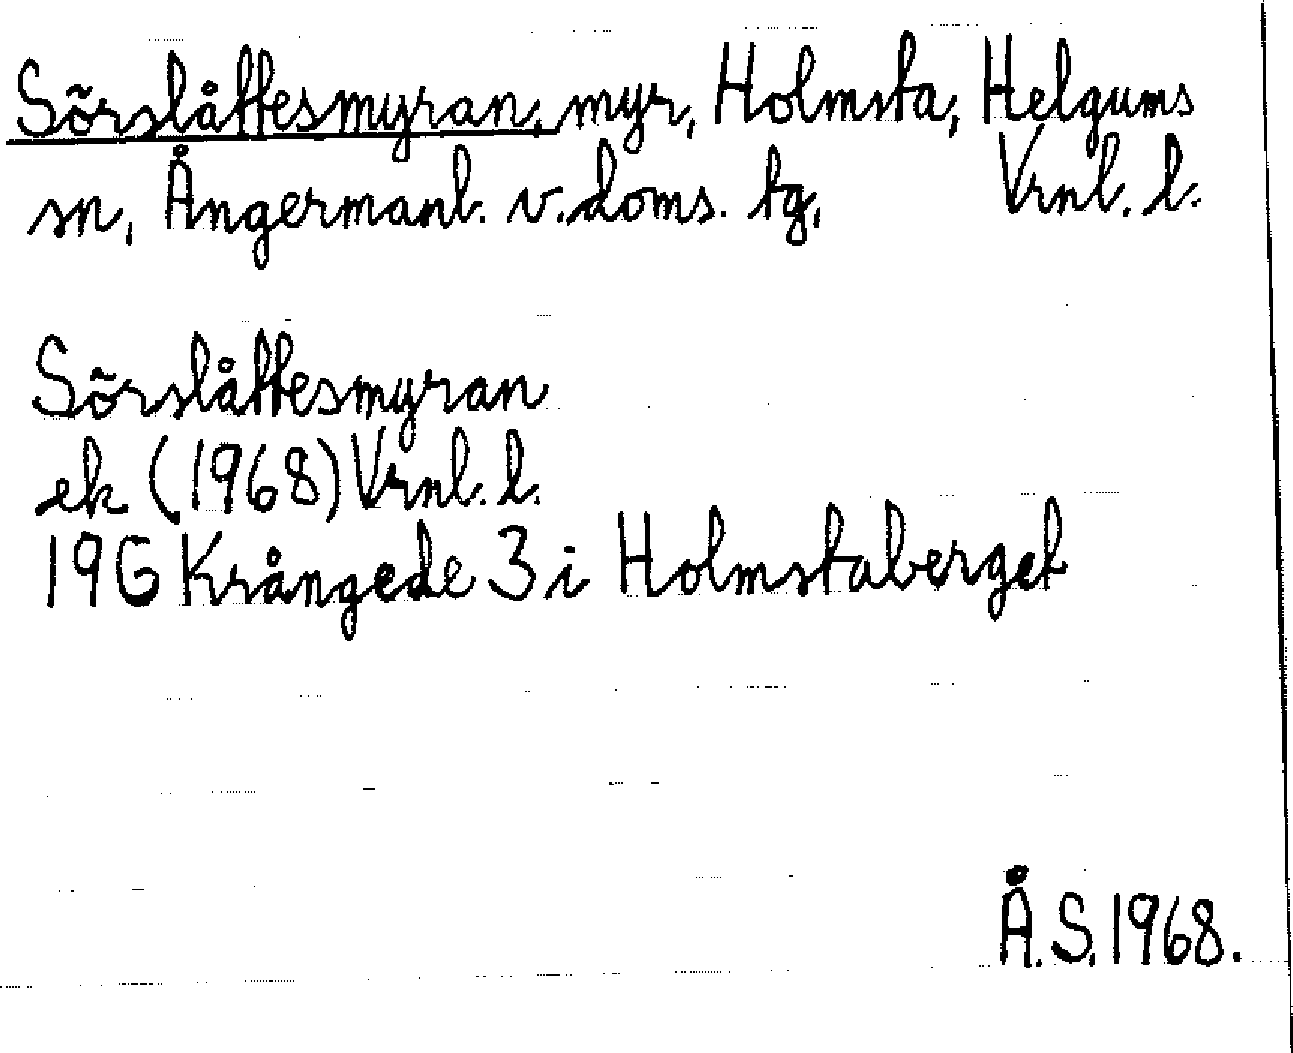 Sörslåttesmyran, myr, Holmsta, Helgums
sn, Ångermanl. v. doms. tg, Vrnl. l.
Sörslåttesmyran
ek (1968) Vrnl. l.
19G Krångede 3 i Holmstaberget
Å.S. 1968.